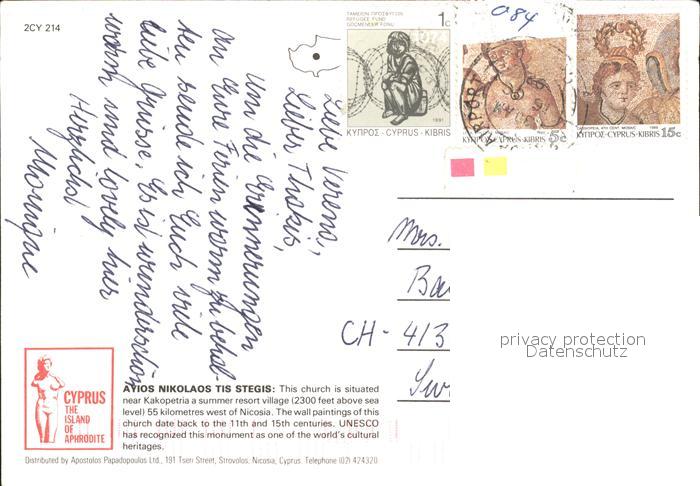 2CY 214
Liebe Verena,
Lieber Thomas,
Um die Erinnerungen
an Eure Ferien warm zu behal-
ten sende ich Euch viele
liebe Grüsse. Es ist wunderschön
warm und lovely hier
Herzlichst
Monique
ΤΑΜΕΙΟΝ ΠΡΟΣΦΥΓΩΝ
REFUGEE FUND
GÖÇMENLER FONU
1c
1974
1991
ΚΥΠΡΟΣ-CYPRUS-KIBRIS
084
ΚΥΠΡΟΣ-CYPRUS-KIBRIS 5c
CASSIOPEIA, 4TH CENT. MOSAIC 1989
ΚΥΠΡΟΣ-CYPRUS-KIBRIS 15c
Mrs.
Ba
CH - 413
Sw
privacy protection
Datenschutz
CYPRUS
THE
ISLAND
OF
APHRODITE
AYIOS NIKOLAOS TIS STEGIS: This church is situated
near Kakopetria a summer resort village (2300 feet above sea
level) 55 kilometres west of Nicosia. The wall paintings of this
church date back to the 11th and 15th centuries. UNESCO
has recognized this monument as one of the world's cultural
heritages.
Distributed by Apostolos Papadopoulos Ltd., 191 Tseri Street, Strovolos, Nicosia, Cyprus. Telephone (02) 424320